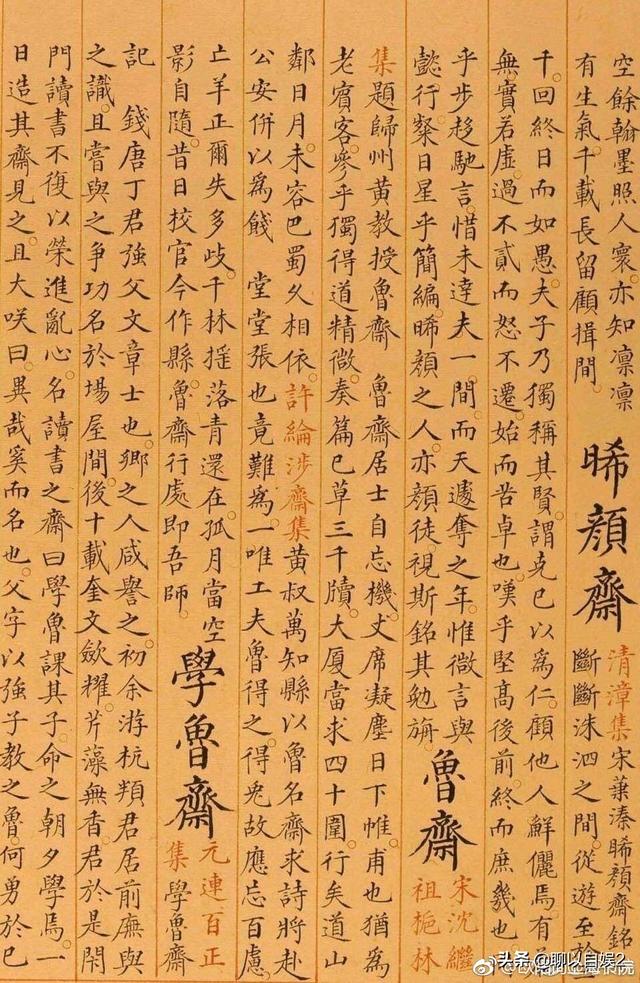 空餘翰墨照人寰亦知凜凜
有生氣千載長留顧揖間
晞顔齋
清漳集宋蕭溱晞顔齋銘
斷斷洙泗之間從遊至於
千回終日而如愚夫子乃獨稱其賢謂克已以爲仁顧他人鮮儷焉有
無實若虛過不貳而怒不遷始而苦卓也嘆乎堅髙後前終而庶幾也
乎步趍馳言惜未達夫一間而天遽奪之年惟微言與
懿行粲日星乎簡編晞顔之人亦顔徒視斯銘其勉旃
魯齋
宋沈繼
祖梔林
集題歸州黄教授魯齋 魯齋居士自忘機丈席凝塵日下帷甫也猶爲
老賓客參乎獨得道精微奏篇已草三千牘大厦當求四十圍行矣道山
鄰日月未容巴蜀久相依許綸涉齋集黄叔萬知縣以魯名齋求詩將赴
公安併以爲餞 堂堂張也竟難爲一唯工夫魯得之得兔故應忘百慮
亡羊正爾失多歧千林摇落青還在孤月當空
影自隨昔日校官今作縣魯齋行處即吾師
學魯齋
元連百正
集學魯齋
記 錢唐丁君強父文章士也鄉之人咸譽之初余游杭頖君居前廡與
之識且嘗與之争功名於場屋間後十載奎文斂耀芹藻無香君於是閇
門讀書不復以榮進亂心名讀書之齋曰學魯課其子命之朝夕學焉一
日造其齋見之且大咲曰異哉奚而名也父字以強子教之魯何勇於已
头条 @聊以自娱2